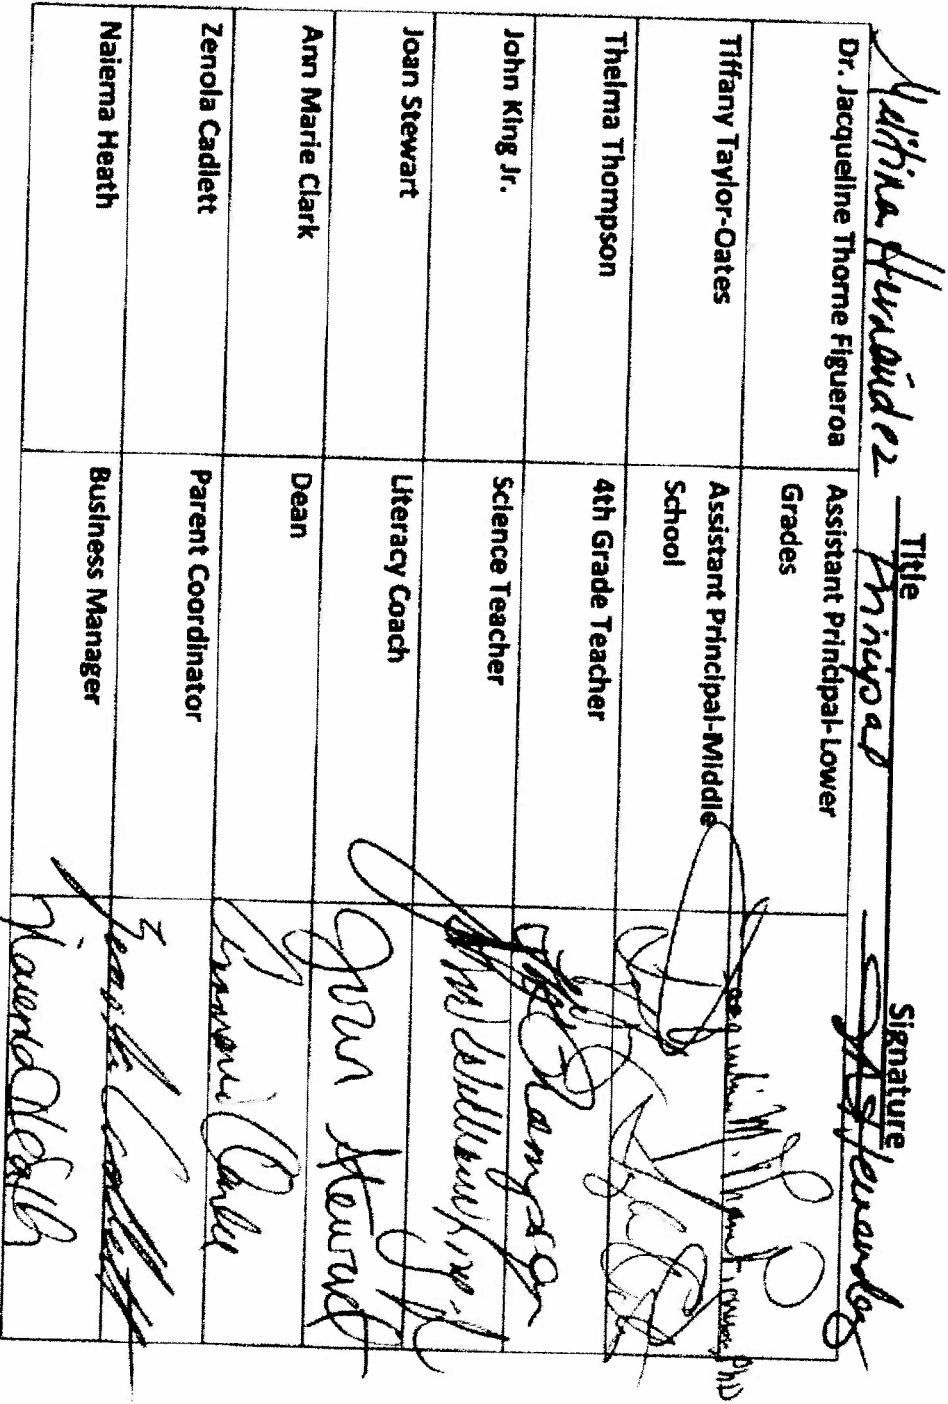 Title Signature
Hernández Principal
Dr. Jacqueline Thorne Figueroa Assistant Principal-Lower
Grades
Tiffany Taylor-Oates Assistant Principal-Middle
School
Thelma Thompson 4th Grade Teacher
John King Jr. Science Teacher
Joan Stewart Literacy Coach Joan Stewart
Ann Marie Clark Dean
Zenola Cadlett Parent Coordinator
Naiema Heath Business Manager Naiema Heath